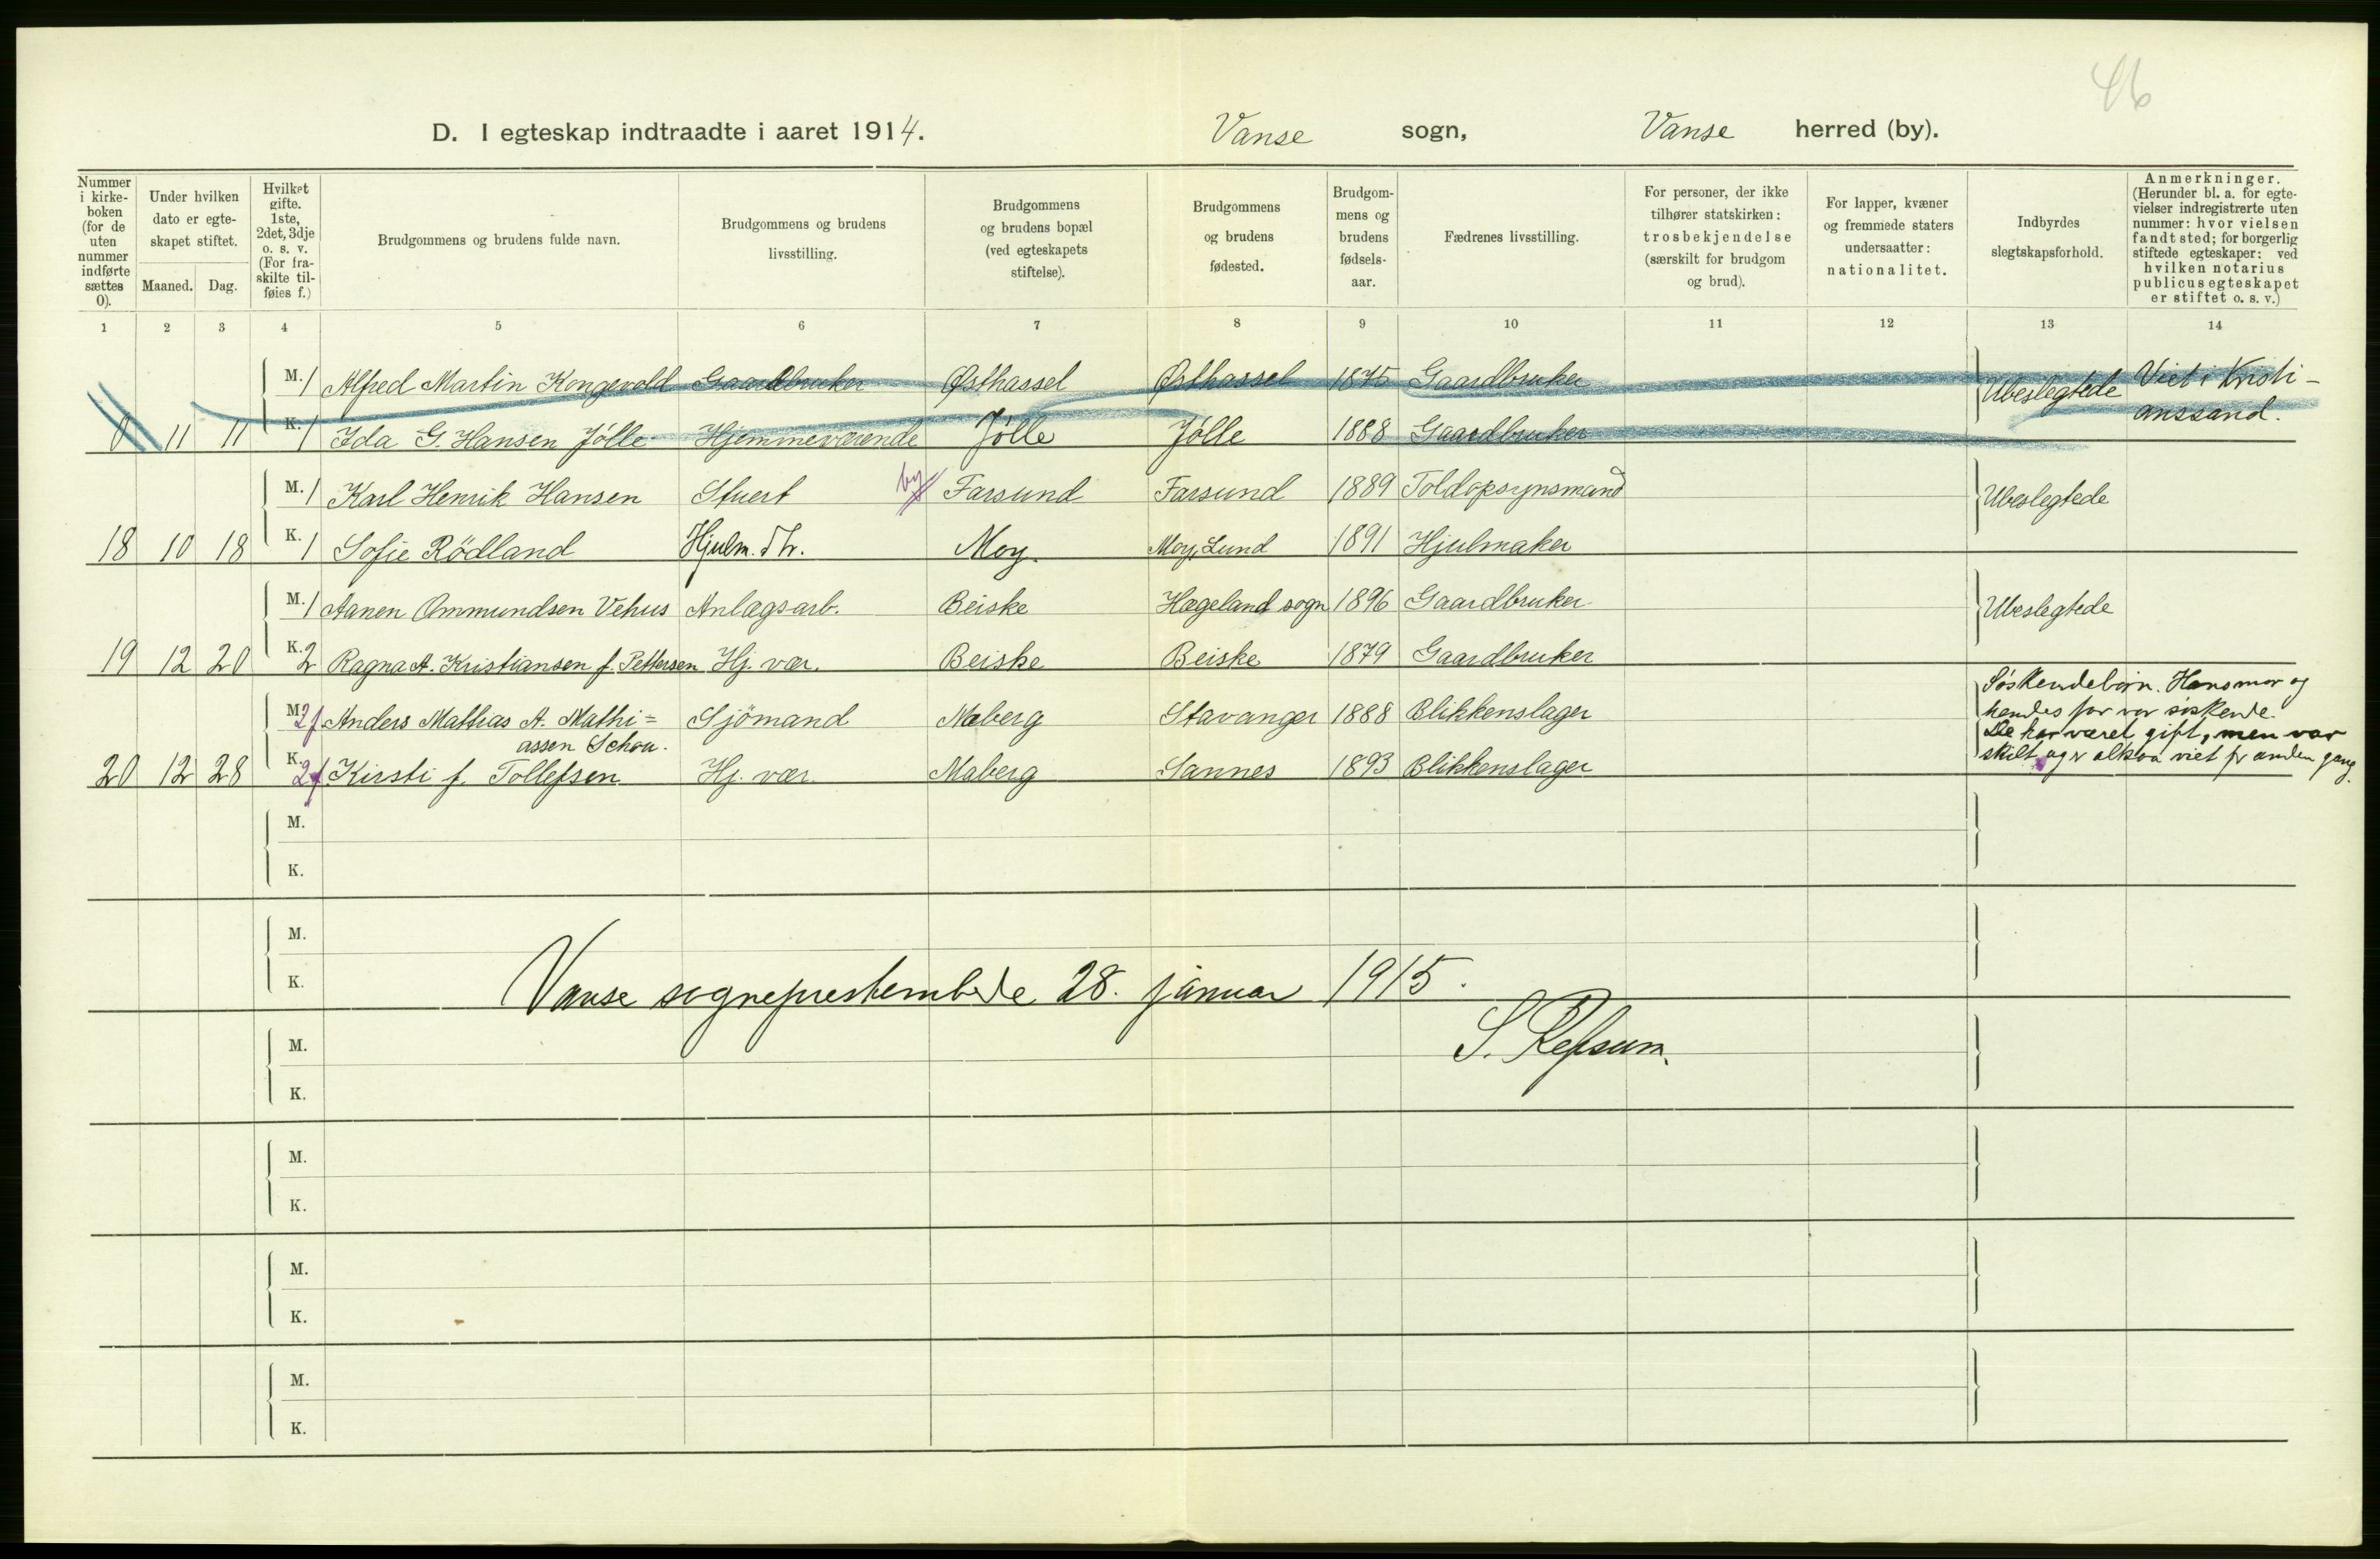 46
D. I egteskap indtraadte i aaret 1914. Vanse sogn, Vanse herred (by).
Nummer i kirkeboken (for de uten nummer indførte sættes 0).
Under hvilken dato er egteskapet stiftet.
Maaned. Dag.
Hvilket gifte. 1ste, 2det, 3dje o. s. v. (For fraskilte tilføies f.)
Brudgommens og brudens fulde navn.
Brudgommens og brudens livsstilling.
Brudgommens og brudens bopæl (ved egteskapets stiftelse).
Brudgommens og brudens fødested.
Brudgommens og brudens fødselsaar.
Fædrenes livsstilling.
For personer, der ikke tilhører statskirken: trosbekjendelse (særskilt for brudgom og brud).
For lapper, kvæner og fremmede staters undersaatter: nationalitet.
Indbyrdes slegtskapsforhold.
Anmerkninger. (Herunder bl. a. for egtevielser indregistrerte uten nummer: hvor vielsen fandt sted; for borgerlig stiftede egteskaper: ved hvilken notarius publicus egteskapet er stiftet o. s. v.)
1 2 3 4 5 6 7 8 9 10 11 12 13 14
M. 1 Alfred Martin Kongevold Gaardbruker Østhassel Østhassel 1875 Gaardbruker Ubeslegtede Viet i Kristi-
anssand.
0 11 11 K. 1 Ida G. Hansen Jølle Hjemmeværende Jølle Jølle 1888 Gaardbruker
M. 1 Karl Henrik Hansen Stuert by Farsund Farsund 1889 Toldopsynsmand Ubeslegtede
18 10 18 K. 1 Sofie Rödland Hjulm. dtr. Moy. Moy, Lund 1891 Hjulmaker
M. 1 Aanen Ommundsen Vehus Anlægsarb. Beiske Hægeland sogn 1896 Gaardbruker Ubeslegtede
19 12 20 K. 2 Ragna A. Kristiansen f. Pettersen Hj. vær. Beiske Beiske 1879 Gaardbruker
M. 2f Anders Mathias A. Mathi= Sjömand Maberg Stavanger 1888 Blikkenslager
assen Schou.
20 12 28 K. 2f Kirsti f. Tollefsen Hj. vær. Maberg Sannes 1893 Blikkenslager
Søskendebørn. Hans mor og
hendes far var søskende.
De har været gift, men var
skilt og er altsaa viet for anden gang.
M.
K.
M.
K.
Vanse sogneprestembede 28. januar 1915.
S. Refsum.
M.
K.
M.
K.
M.
K.
M.
K.